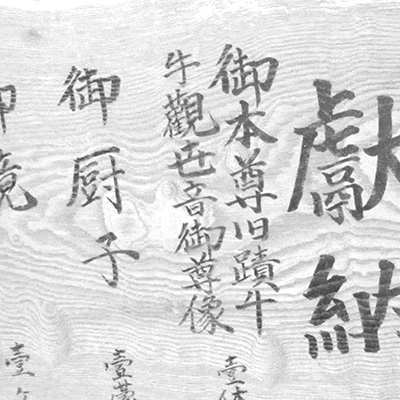 獻納
御本尊旧蹟牛
牛觀世音御尊像
壹体
御厨子
壹
御鏡
壹